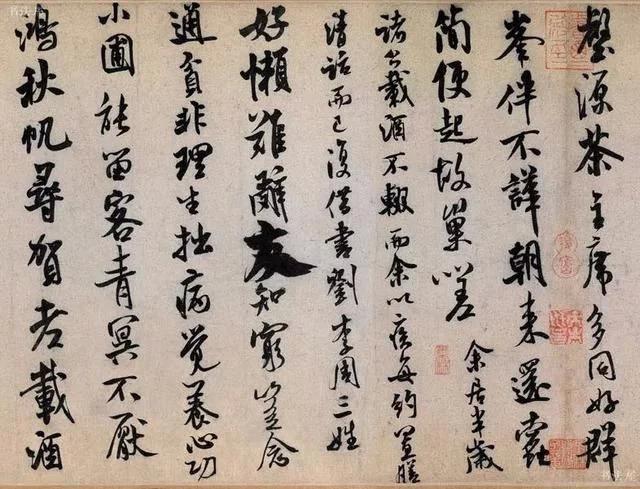 壑源茶主席多同好群
峯伴不譁朝来還蠹
簡便起故巢嗟 余居半歲
諸公載酒不輟而余以疾每約置膳
清話而已復借書劉李周三姓
好懶難辭友知窮豈念
通貧非理生拙病覺養心功
小圃能留客青冥不厭
鴻秋帆尋賀老載酒